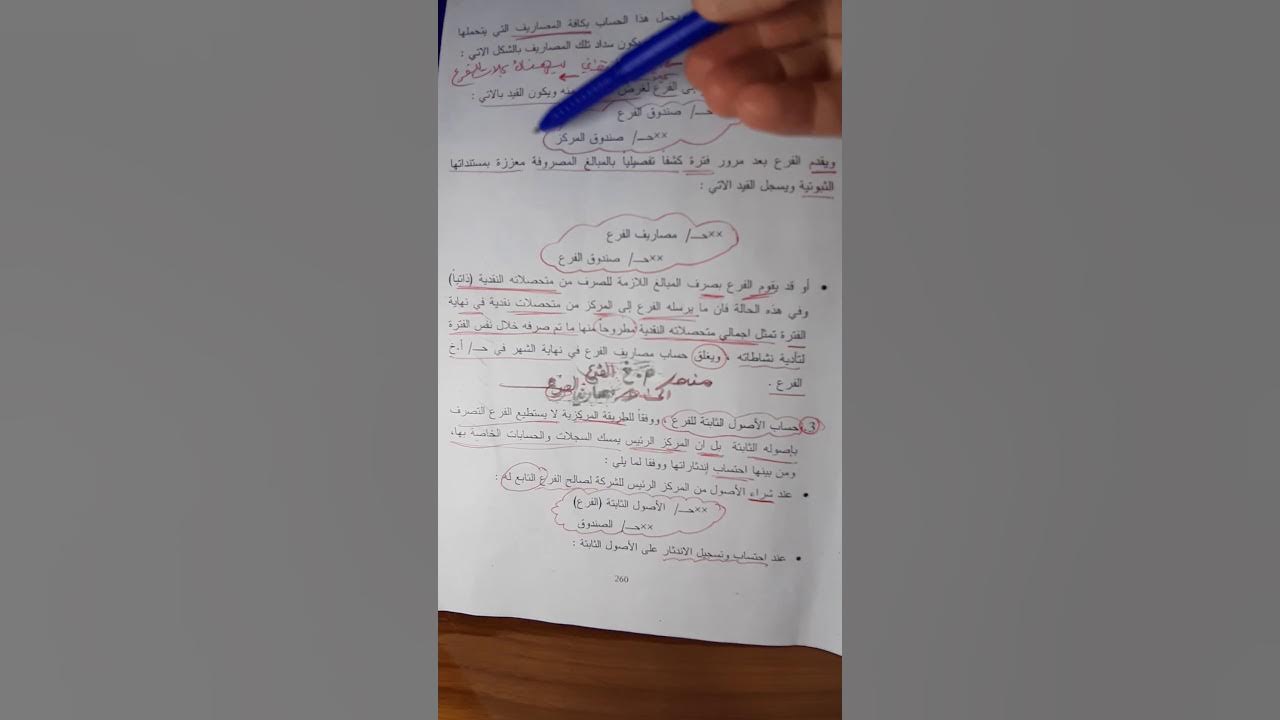 يحمل هذا الحساب بكافة المصاريف التي يتحملها
يكون سداد تلك المصاريف بالشكل الاتي :
الفرع لغرض ويكون القيد بالاتي :
حـ/ صندوق الفرع
××حـ/ صندوق المركز
ويقدم الفرع بعد مرور فترة كشفاً تفصيلياً بالمبالغ المصروفة معززة بمستنداتها
الثبوتية ويسجل القيد الاتي :
××حـ/ مصاريف الفرع
××حـ/ صندوق الفرع
• أو قد يقوم الفرع بصرف المبالغ اللازمة للصرف من متحصلاته النقدية (ذاتياً)
وفي هذه الحالة فان ما يرسله الفرع إلى المركز من متحصلات نقدية في نهاية
الفترة تمثل اجمالي متحصلاته النقدية مطروحاً منها ما تم صرفه خلال نفس الفترة
لتأدية نشاطاته ، ويغلق حساب مصاريف الفرع في نهاية الشهر في حـ/ أ.خ
الفرع .
3. حساب الأصول الثابتة للفرع ، ووفقاً للطريقة المركزية لا يستطيع الفرع التصرف
بإصوله الثابتة بل ان المركز الرئيس يمسك السجلات والحسابات الخاصة بها،
ومن بينها احتساب إندثاراتها ووفقا لما يلي :
• عند شراء الأصول من المركز الرئيس للشركة لصالح الفرع التابع له :
××حـ/ الأصول الثابتة (الفرع)
××حـ/ الصندوق
• عند احتساب وتسجيل الاندثار على الأصول الثابتة :
260